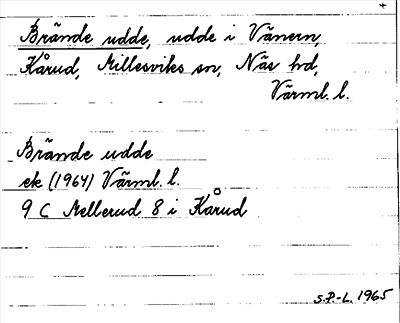 Brände udde, udde i Vänern,
Kårud, Millesviks sn, Näs hd,
Värml. l.
Brände udde
ek (1964) Värml. l.
9 C Mellerud 8 i Kårud
S.P.-L. 1965